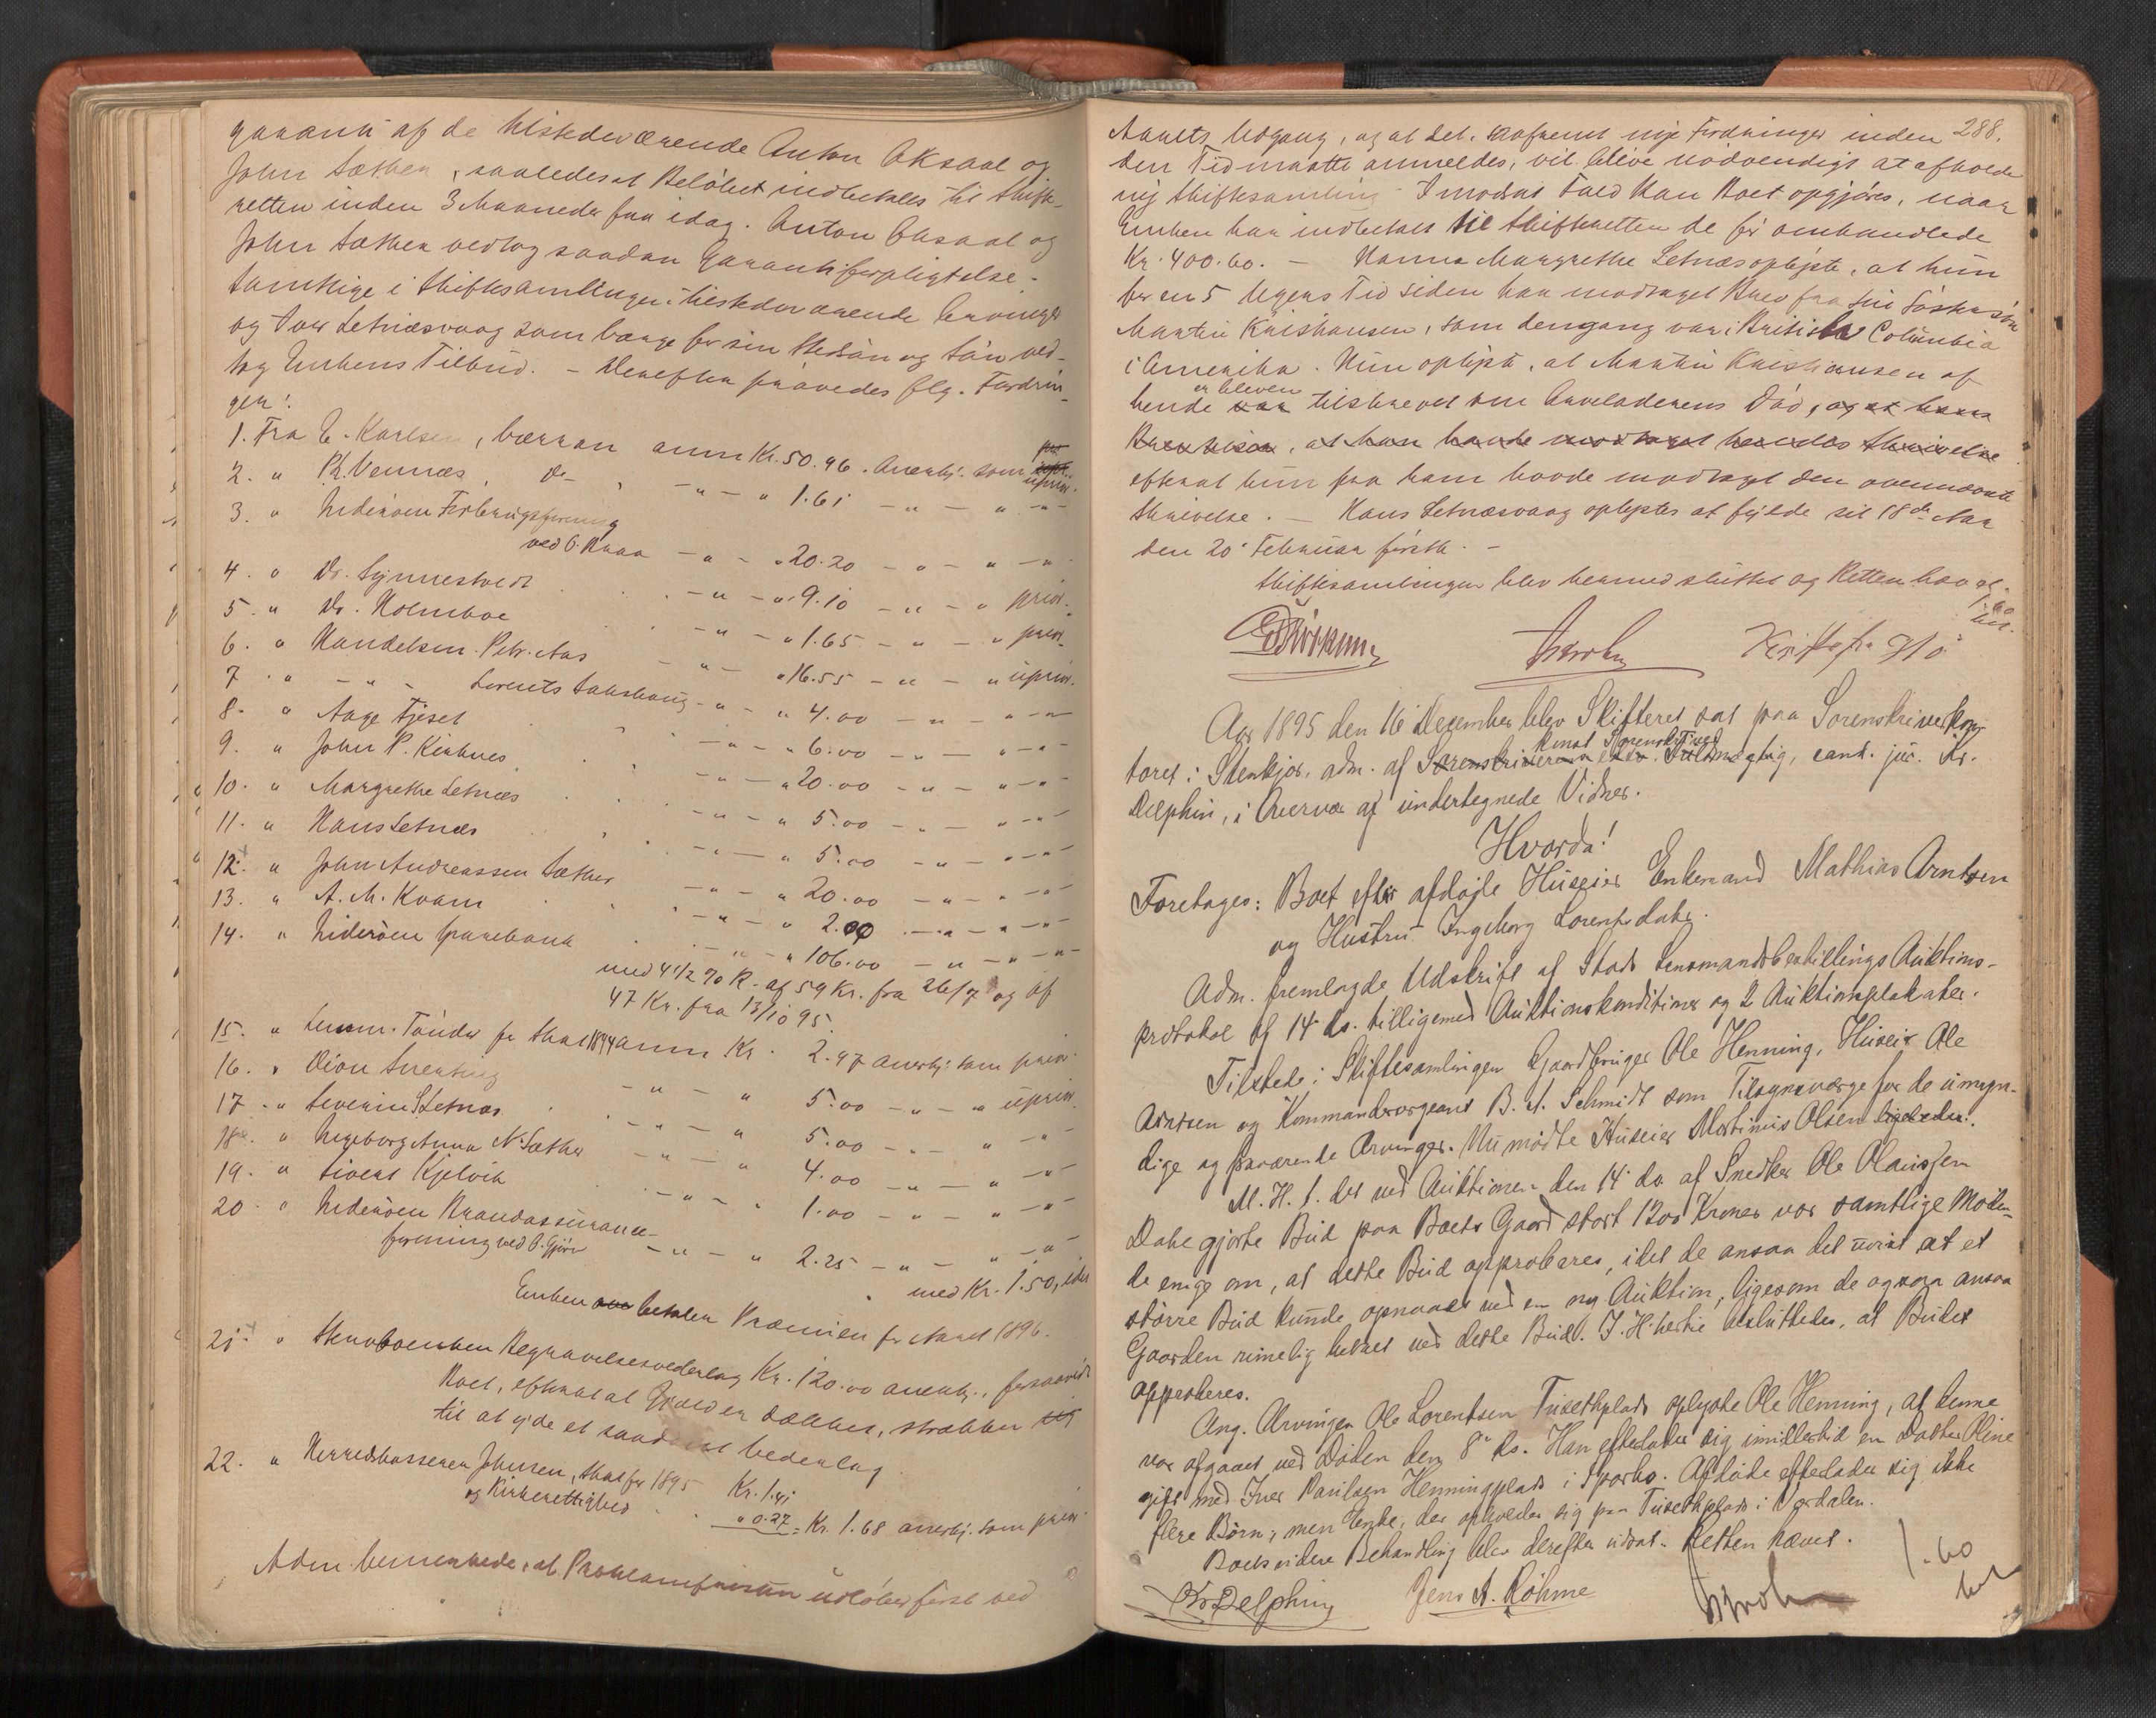 garanti af de tilstedeværende Anton Aksaal og
John Sæther, saaledes at Beløbet indbetales til Skifte-
retten inden 3 Maaneder fra idag. Anton Aksaal og
John Sæther vedtog saadan Garantiforpligtelse.
Samtlige i Skiftesamlingen tilstedeværende Arvinger
og Iver Letnæsvaag som Værge for sin Stedsøn og Søn ved-
tog Enkens Tilbud. - Derefter prøvedes flg. Fordrin-
ger:
1. Fra E. Karlsen, Værran anm Kr. 50.96. Anerkj. som uprior.
2. " P. Vennes, do - " - " 1.61 - " - " - " -
3. " Inderøen Forbrugsforening
ved O. Kraa - " - " 20.20 - " - " - " -
4. " Dr. Synnestvedt - " - " 9.10 - " - " prior.
5. " Dr. Holmboe - " - " 1.65 - " - " prior.
6. " Handelsm. Petr. Aas - " - " 16.55 - " - " uprior.
7. " - " - Lorents Sakshaug - " - " 4.00 - " - " - " -
8. " Aage Fjeset - " - " 6.00 - " - " - " -
9. " John P. Kirknes - " - " 20.00 - " - " - " -
10. " Margrethe Letnæs - " - " 5.00 - " - " - " -
11. " Hans Letnæs - " - " 5.00 - " - " - " -
12. " John Andreassen Sæther - " - " 20.00 - " - " - " -
13. " A. M. Kvam - " - " 2.00 - " - " - " -
14. " Inderøen Sparebank - " - " 106.00 - " - " - " -
med 4 1/2 % R. af 59 Kr. fra 26/7 og af
47 Kr. fra 13/10 95.
15. " Lensm. Tønder for Skat 1894 anm Kr. 2.97 anerkj. som prior.
16. " - " - " 5.00 - " - " uprior.
17. " Severin S. Letnæs - " - " 5.00 - " - " - " -
18. " Ingeborg Anna N. Sæther - " - " 4.00 - " - " - " -
19. " Sivert Kjelvik - " - " 1.00 - " - " - " -
20. " Inderøen Brandassurance-
forening ved O. Gjørv - " - " 2.25 - " - " - " -
med Kr. 1.50, idet
Enken betaler Præmien for Aaret 1896.
21. " Begravelsesvederlag Kr. 120.00 anerkj., forsaavidt
Boet, efterat al Gjæld er dækket, strækker
til at yde et saadant vederlag
22. " Herredskasserer Johnsen, Skat for 1895 Kr. 1.41
og Kirkerettighed " 0.27 = Kr. 1.68 anerkj. som prior.
Adm. bemerkede, at Proklamfristen udløber først ved
288.
Aarets Udgang, og at det, saafremt nye Fordringer inden
den Tid maatte anmeldes, vil blive nødvendigt at afholde
ny Skiftesamling. I modsat Fald kan Boet opgjøres, naar
Enken har indbetalt til Skifteretten de før omhandlede
Kr. 400.60. - Hanna Margrethe Letnæs oplyste, at hun
for en 5 Ugers Tid siden har modtaget Brev fra sin Søstersøn
Martin Kristiansen, som dengang var i British Columbia
i Amerika. Hun oplyste, at Martin Kristiansen af
er bleven
hende var tilskrevet om Arveladerens Død, og at hans
Brev viser, at han havde modtaget hendes Skrivelse
efterat hun fra ham havde modtaget den ovennævnte
Skrivelse. - Hans Letnæsvaag oplystes at fylde sit 18de Aar
den 20 Februar førstk. -
Skiftesamlingen blev hermed sluttet og Retten hævet.
Aar 1895 den 16 December blev Skifteret sat paa Sorenskriverkon-
konst. Sorenskriver
toret i Stenkjær, adm. af Sorenskriverens edsv. Fuldmægtig, cand. jur. Kr.
Delphin, i Overvær af undertegnede Vidner.
Hvorda!
Foretages: Boet efter afdøde Huseier Enkemand Mathias Arntsen
og Hustru Ingeborg Lorentsdatr.
Adm. fremlagde Udskrift af Stods Lensmandsbestillings Auktions-
protokol af 14 ds. tilligemed Auktionskonditioner og 2 Auktionsplakater.
Tilstede i Skiftesamlingen Gaardbruger Ole Henning, Huseier Ole
Arntsen og Kommandersergeant B. A. Schmidt som Tilsynsværge for de umyn-
dige og fraværende Arvinger. Nu mødte Huseier Martinus Olsen ligeledes.
M. H. t. det ved Auktionen den 14 ds. af Snedker Ole Olaussen
Dahl gjorte Bud paa Boets Gaard stort 1200 Kroner var samtlige Møden-
de enige om, at dette Bud approberes, idet de ansaa det uvist at et
større Bud kunde opnaaes ved en ny Auktion, ligesom de ogsaa ansaa
Gaarden rimelig betalt ved dette Bud. I. H. hertil besluttedes, at Budet
approberes.
Ang. Arvingen Ole Lorentsen Tusethplads oplyste Ole Henning, at denne
var afgaaet ved Døden den 8de ds. Han efterlader sig imidlertid en Datter Oline
gift med Iver Paulsen Henningplads i Sparbo. Afdøde efterlader sig ikke
flere Børn; men Enke, der opholder sig paa Tusethplads i Værdalen.
Boets videre Behandling blev derefter udsat. Retten hævet.
1.60
Kr Delphin Jens A. Røhme